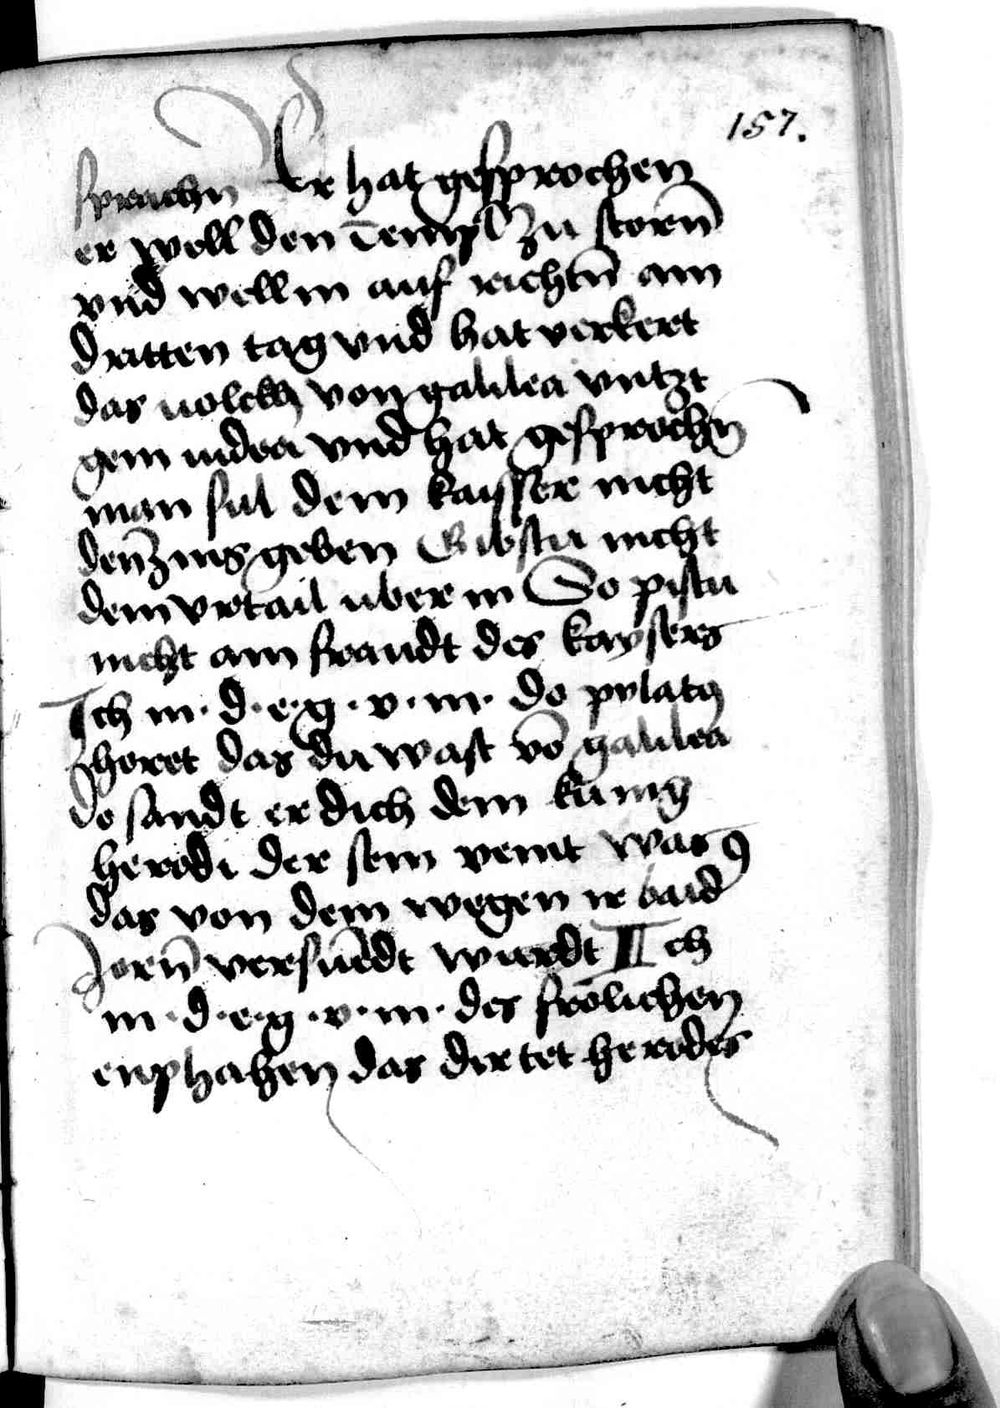 157.
sprachn Er hat gesprochen
er well den Templ zu storn̄
vnd wellin auf richtn̄ am
dritten tag vnd hat verkert
das uolckh von galilea vntzt
gein iudea vnd hat gesprochn̄
man sul dem kaysser nicht
den zins geben Gibstu nicht
dem vrtail uber in So pistu
nicht ain frandt des kaysers
Ich m · d · e · g · v · m · do pylatꝰ
horet das du wast vō galilea
do sandt er dich dem kūnig
herodi der sein veint was
das von dem wegen ir baid
zorn̄ versuēdt wurdt Ich
m · d · e · g · v · m · des frölichen
enphahen das dir tet herodes